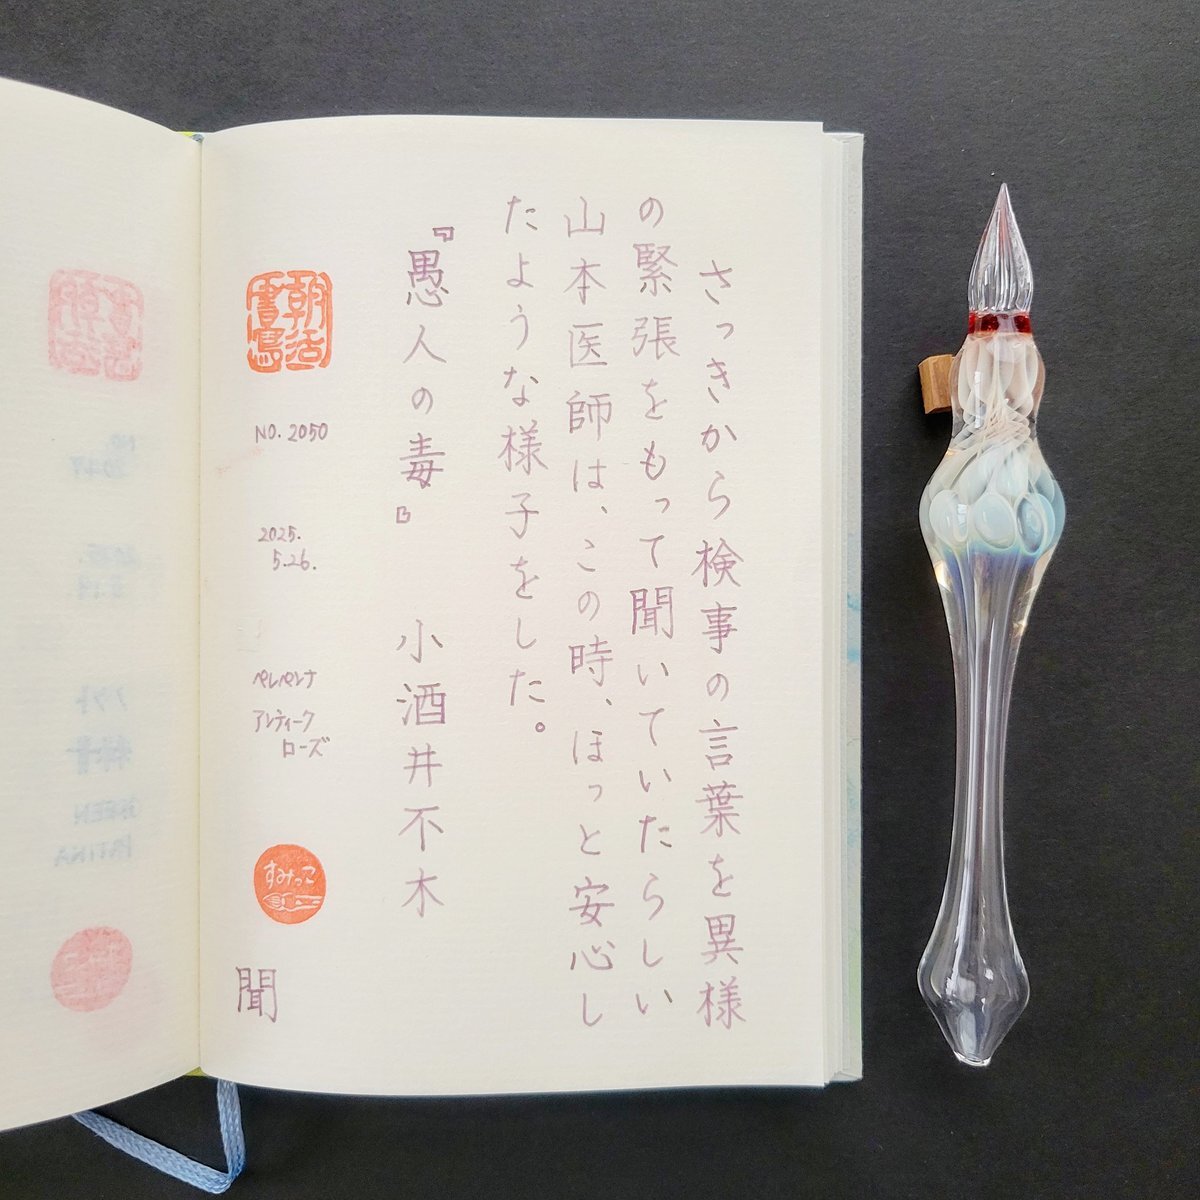 さっきから検事の言葉を異様
の緊張をもって聞いていたらしい
山本医師は、この時、ほっと安心し
たような様子をした。
『愚人の毒』 小酒井不木
朝活
書写
NO. 2050
2025.
5.26.
ペルペレナ
アンティーク
ローズ
すみっこ
聞